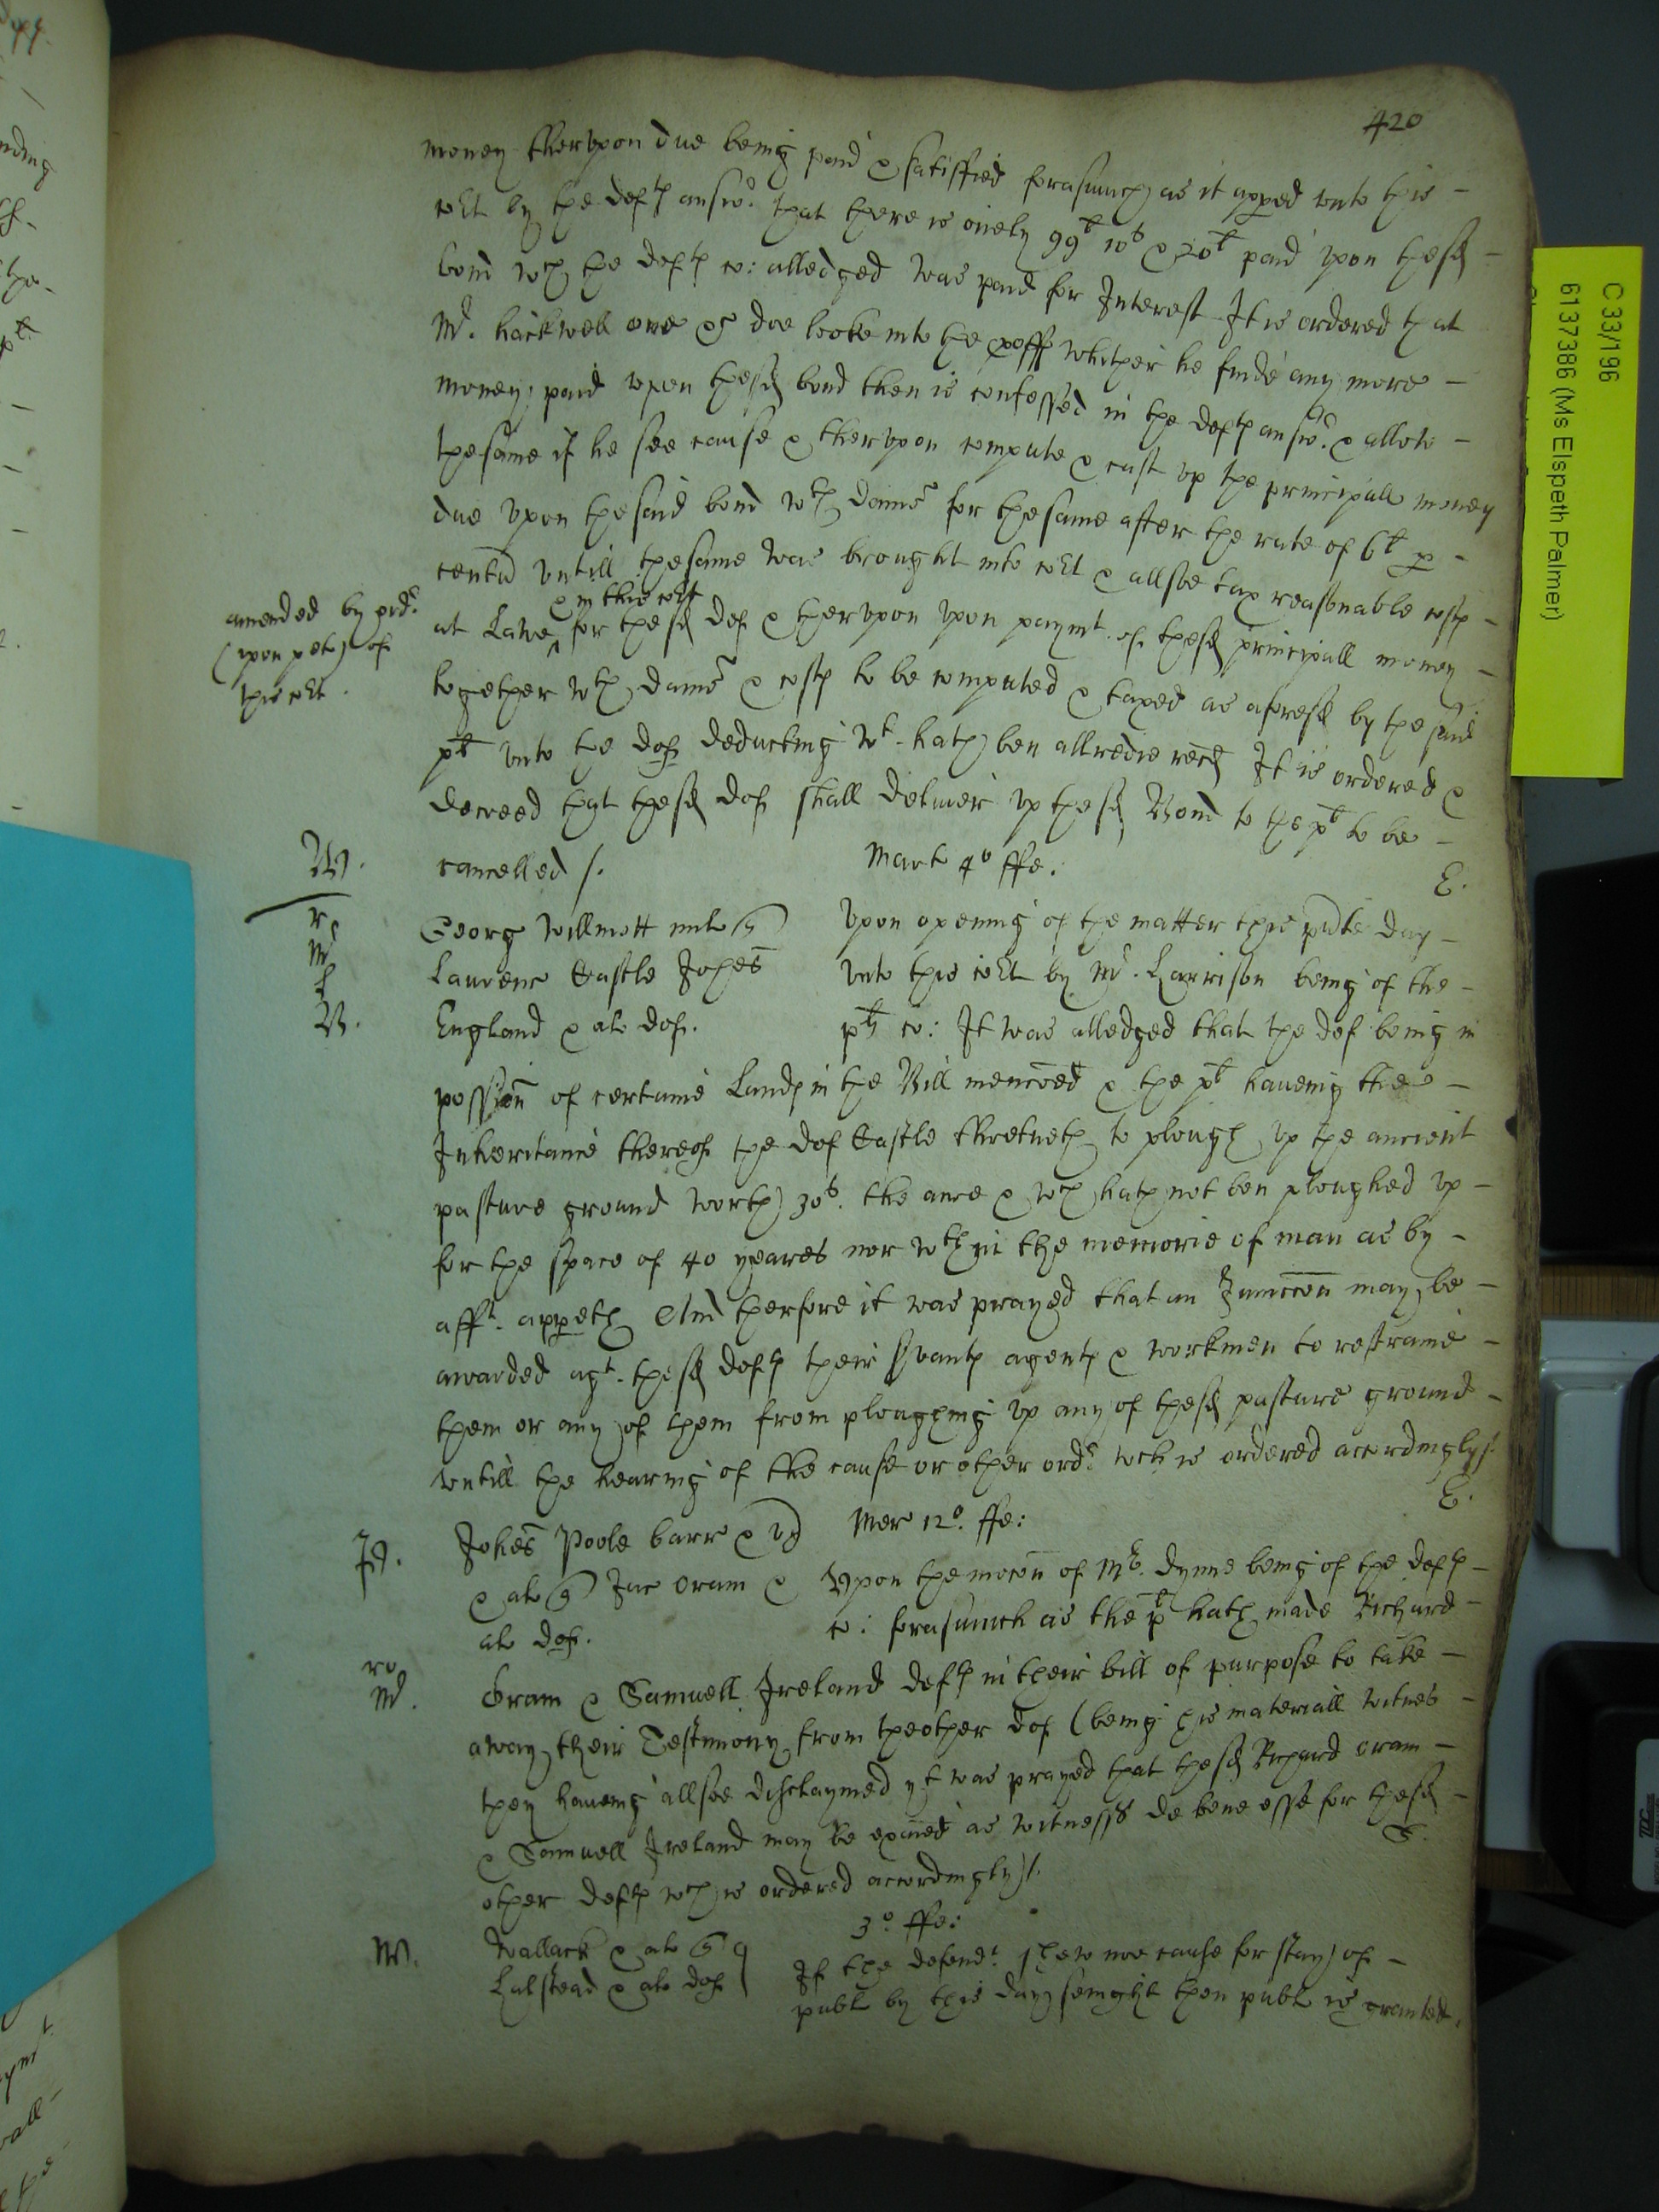 420
money thervpon due being paid & satisffied forasmuch as it appeed vnto this
Cot by the deftes answr. that there is onely 99l 10s & 20l paid vpon the sd
bond wch the deftes co: alledged was paid for Interest It is ordered that
Mr. Hackwell one &c doe looke into the proffs whither he finde any more
money paid vpon the sd bond then is confessed in the deftes answr. & allow
the same if he see cause & thervpon compute & cast vp the principall money
due vpon the said bond wth dams for the same after the rate of 6l p
centu vntill the same was brought into Cot & allsoe tax reasonable costes
& in this Cot
at Lawe for the sd def & thervpon vpon paymt. of the sd principall money
together wth dams & costes to be computed & taxed as aforesd by the said
plt vnto the def deducting wt. hath ben allredie recd It is ordered &
decreed that the sd def shall deliuer vp the sd Bond to the plt to be
cancelled /.
amended by ordr.
(vpon petn) of
this Cot.
W.
Mart 4o ffe:
E.
r
Mr
L
B.
Georg Willmott mil quer
Laurenc Castle Johes
England & al def.
Vpon opening of the matter this pnte day
vnto this Cot by Mr. Harrison being of the
pltes co: It was alledged that the def being in
possion of certaine Landes in the Bill menconed & the plt haueing the
Inheritance thereof the def Castle thretneth to plough vp the ancient
pasture ground worth 30s. the acre & wch hath not ben ploughed vp
for the space of 40 yeares nor wthin the memorie of man as by
afft. appeth And therfore it was prayed that an Iniunccon may be
awarded agt. the sd deftes their servantes agentes & workmen to restraine
them or any of them from ploughing vp any of the sd pasture ground
vntill the hearing of the cause or other ordr wch is ordered accordingly /.
E.
Jd.
Johes Poole barr & vx
& al quer Jac Oram &
al def.
Mer 12o. ffe:
Vpon the mocon of Mr. Dynne being of the deftes
co: forasmuch as the plt hath made Richard
ro
Md.
Oram & Samuell Ireland deftes in their bill of purpose to take
away their Testimony from the other def (being his materiall witnes
they haueing allsoe disclaymed yt was prayed that the sd Richard Oram
& Samuell Ireland may be exaied as witnesss de bene esse for the sd
other deftes wch is ordered accordingly /.
S.
W.
3o. ffe:
Wallack & al quer
Halstead & al def
If the defendt. shew noe cause for stay of
publ by this day senight then publ is granted.
C 33/196
6137386 (Ms Elspeth Palmer)